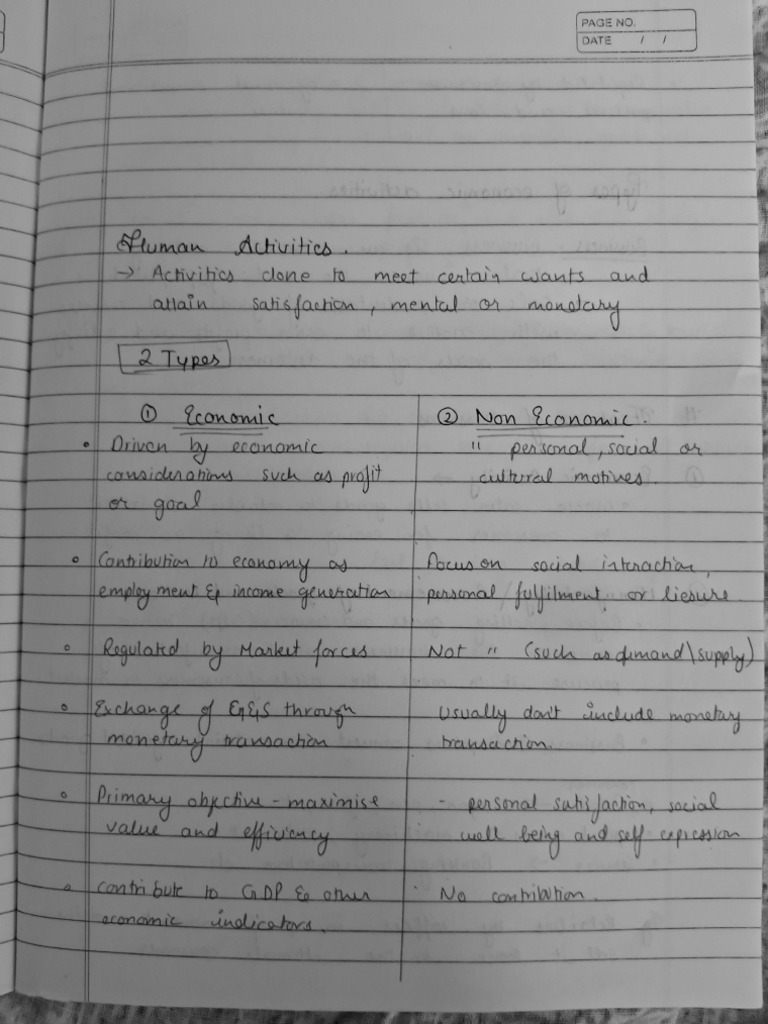 PAGE NO.
DATE / /
Human Activities.
→ Activities done to meet certain wants and
attain satisfaction, mental or monetary
2 Types
① Economic
• Driven by economic
considerations such as profit
or goal
• Contribution to economy as
employment & income generation
• Regulated by Market forces
• Exchange of G&S through
monetary transaction
• Primary objective - maximise
value and efficiency
• Contribute to GDP & other
economic indicators.
② Non Economic.
" personal, social or
cultural motives.
Focus on social interaction,
personal fulfilment, or liesure
Not " (such as demand\supply)
Usually don't include monetary
transaction.
- personal satisfaction, social
well being and self expression
No contribution.